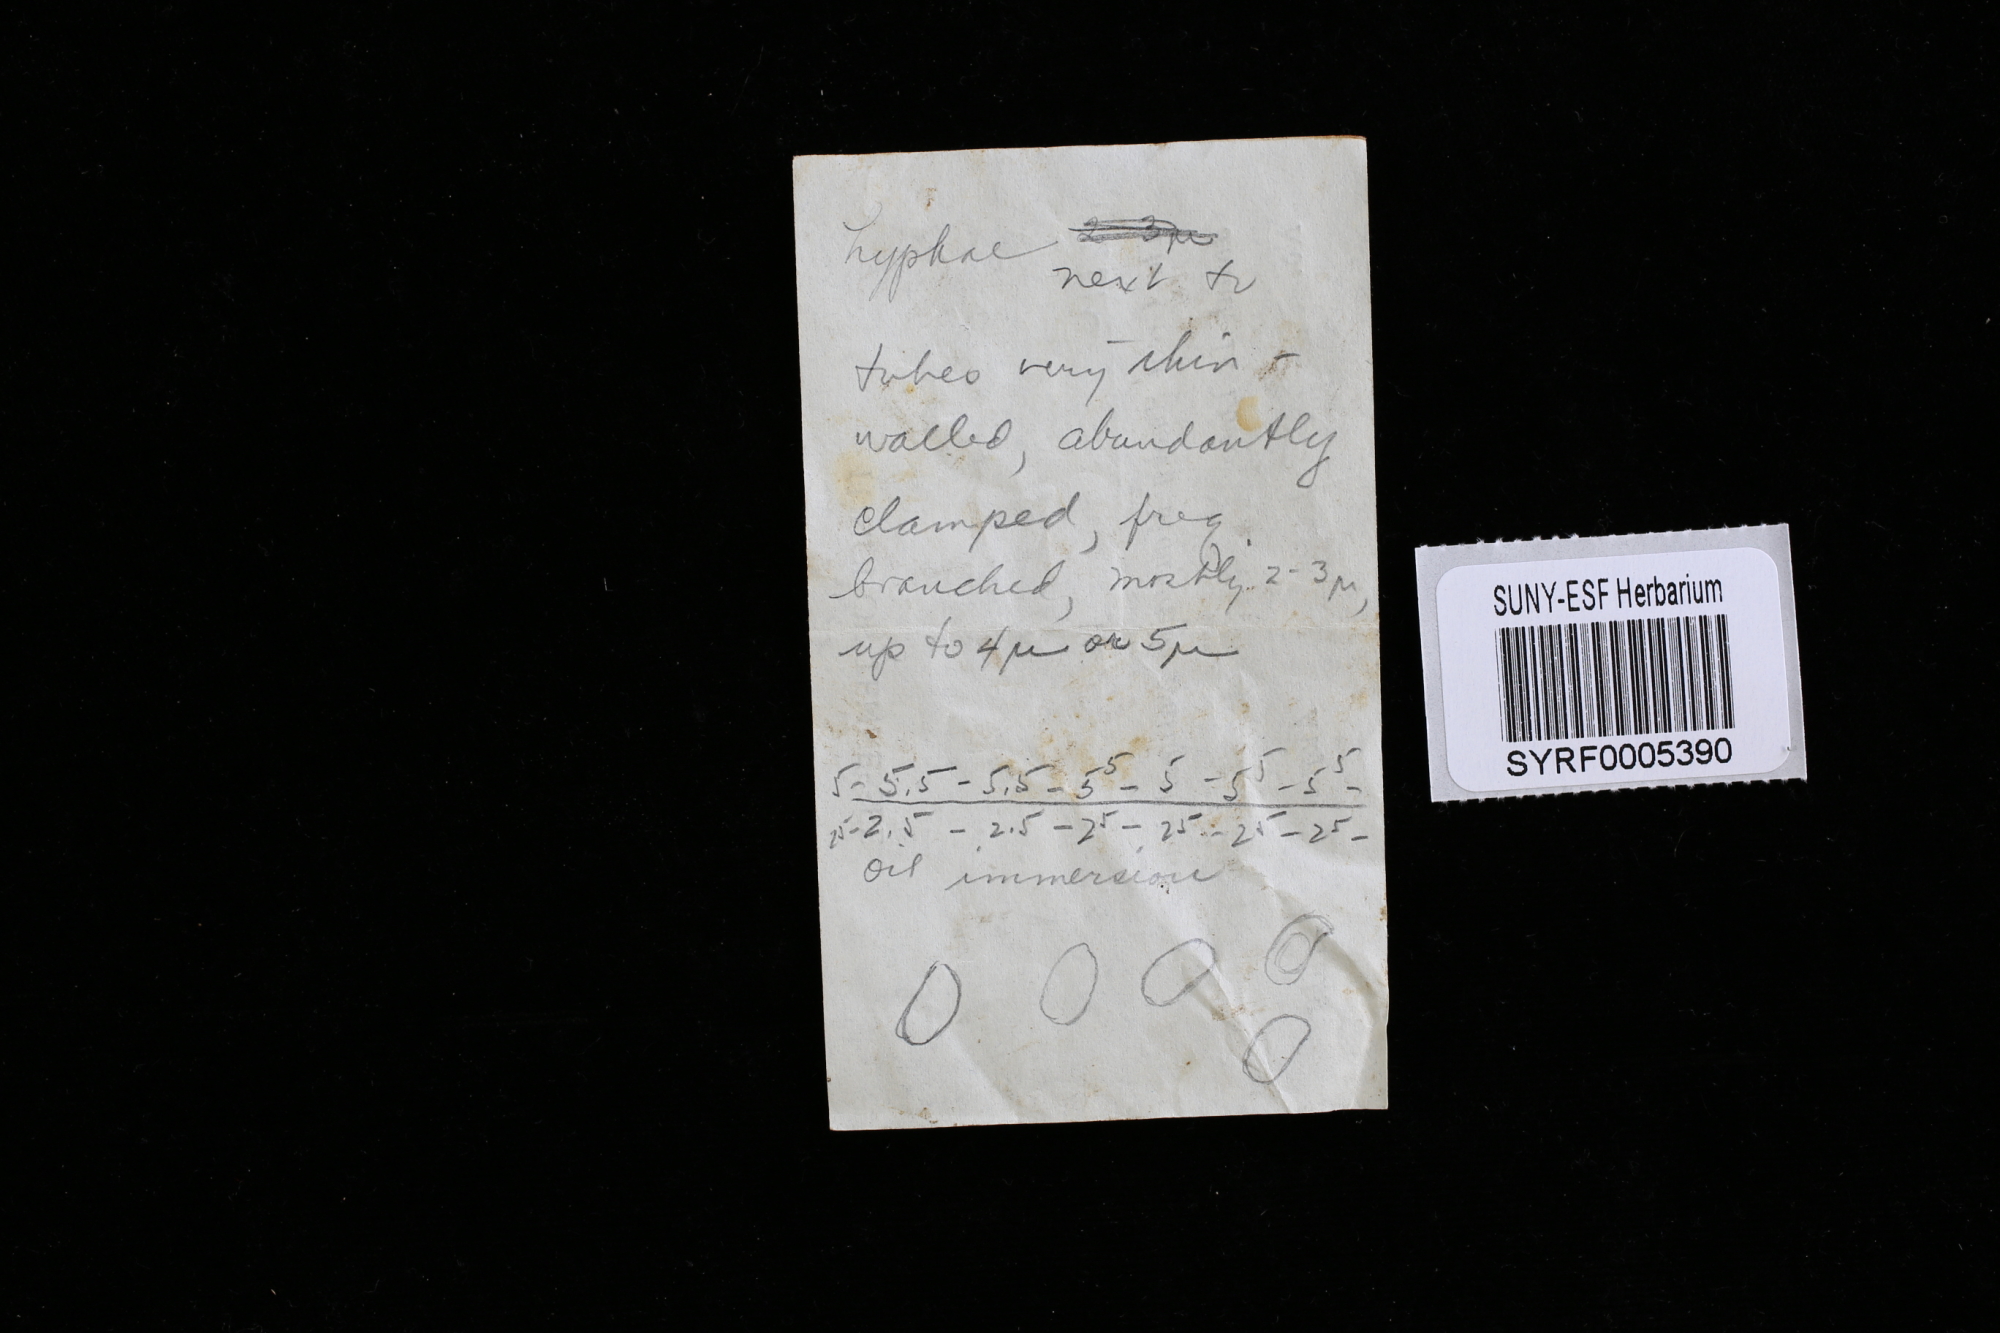 hyphae 2-3µ
next to
tubes very thin -
walled, abundantly
clamped, freq.
branched, mostly 2-3µ,
up to 4µ or 5µ
5 - 5.5 - 5.5 - 5⁵ - 5 - 5⁵ - 5⁵ -
25 - 2.5 - 2.5 - 2⁵ - 2⁵ - 2⁵ - 2⁵ -
oil immersion
SUNY-ESF Herbarium
SYRF0005390